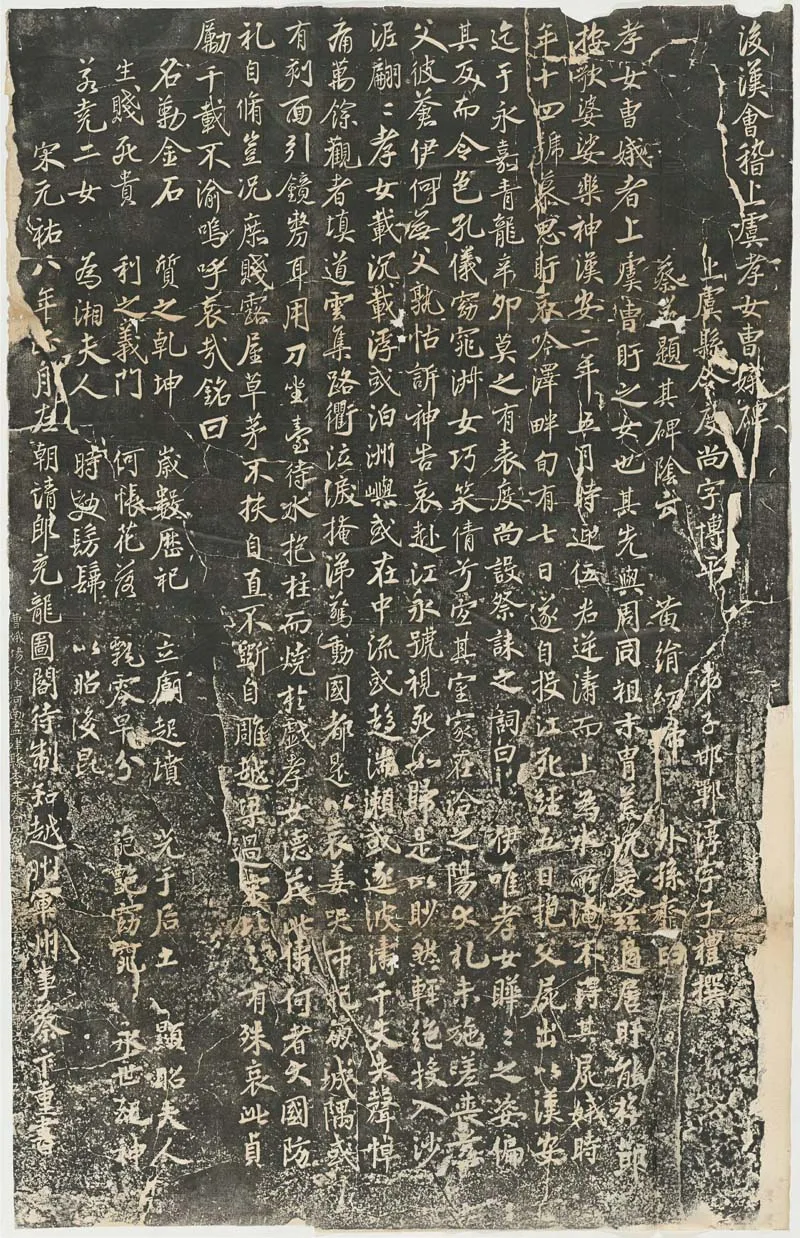 後漢會稽上虞孝女曹娥碑
上虞縣令度尚字博平 弟子邯鄲淳字子禮撰
蔡邕題其碑陰云 黃絹幼婦 外孫齏臼
孝女曹娥者上虞曹盱之女也其先與周同祖末冑荒沈爰茲適居盱能撫節
按歌婆娑樂神漢安二年五月時迎伍君逆濤而上為水所淹不得其屍娥時
年十四號慕思盱哀吟澤畔旬有七日遂自投江死經五日抱父屍出以漢安
迄于永嘉青龍辛卯莫之有表度尚設祭誄之詞曰 伊唯孝女曄〻之姿偏
其反而令色孔儀窈窕淑女巧笑倩兮宜其室家在洽之陽大礼未施嗟喪慈
父彼蒼伊何無父孰怙訴神告哀赴江永號視死如歸是以眇然輕絕投入沙
泥翩〻孝女載沉載浮或泊洲嶼或在中流或趍湍瀨或逐波濤千夫失聲悼
痛萬餘觀者填道雲集路衢泣淚掩涕驚動國都是以哀姜哭市杞崩城隅或
有剋面引鏡剺耳用刀坐臺待水抱柱而燒於戲孝女德茂此儔何者大國防
礼自脩豈況庶賤露屋草茅不扶自直不斲自雕越梁過宋比之有殊哀此貞
勵千載不渝嗚呼哀哉銘曰
名勒金石 質之乾坤 歲數歷祀 立廟起墳 光于后土 顯昭夫人
生賤死貴 利之義門 何悵花落 飄零早分 葩艷窈窕 永世配神
若堯二女 為湘夫人 時効髣髴 以昭後昆
宋元祐八年 月左朝請郎充龍圖閣待制知越州軍州事蔡卞重書